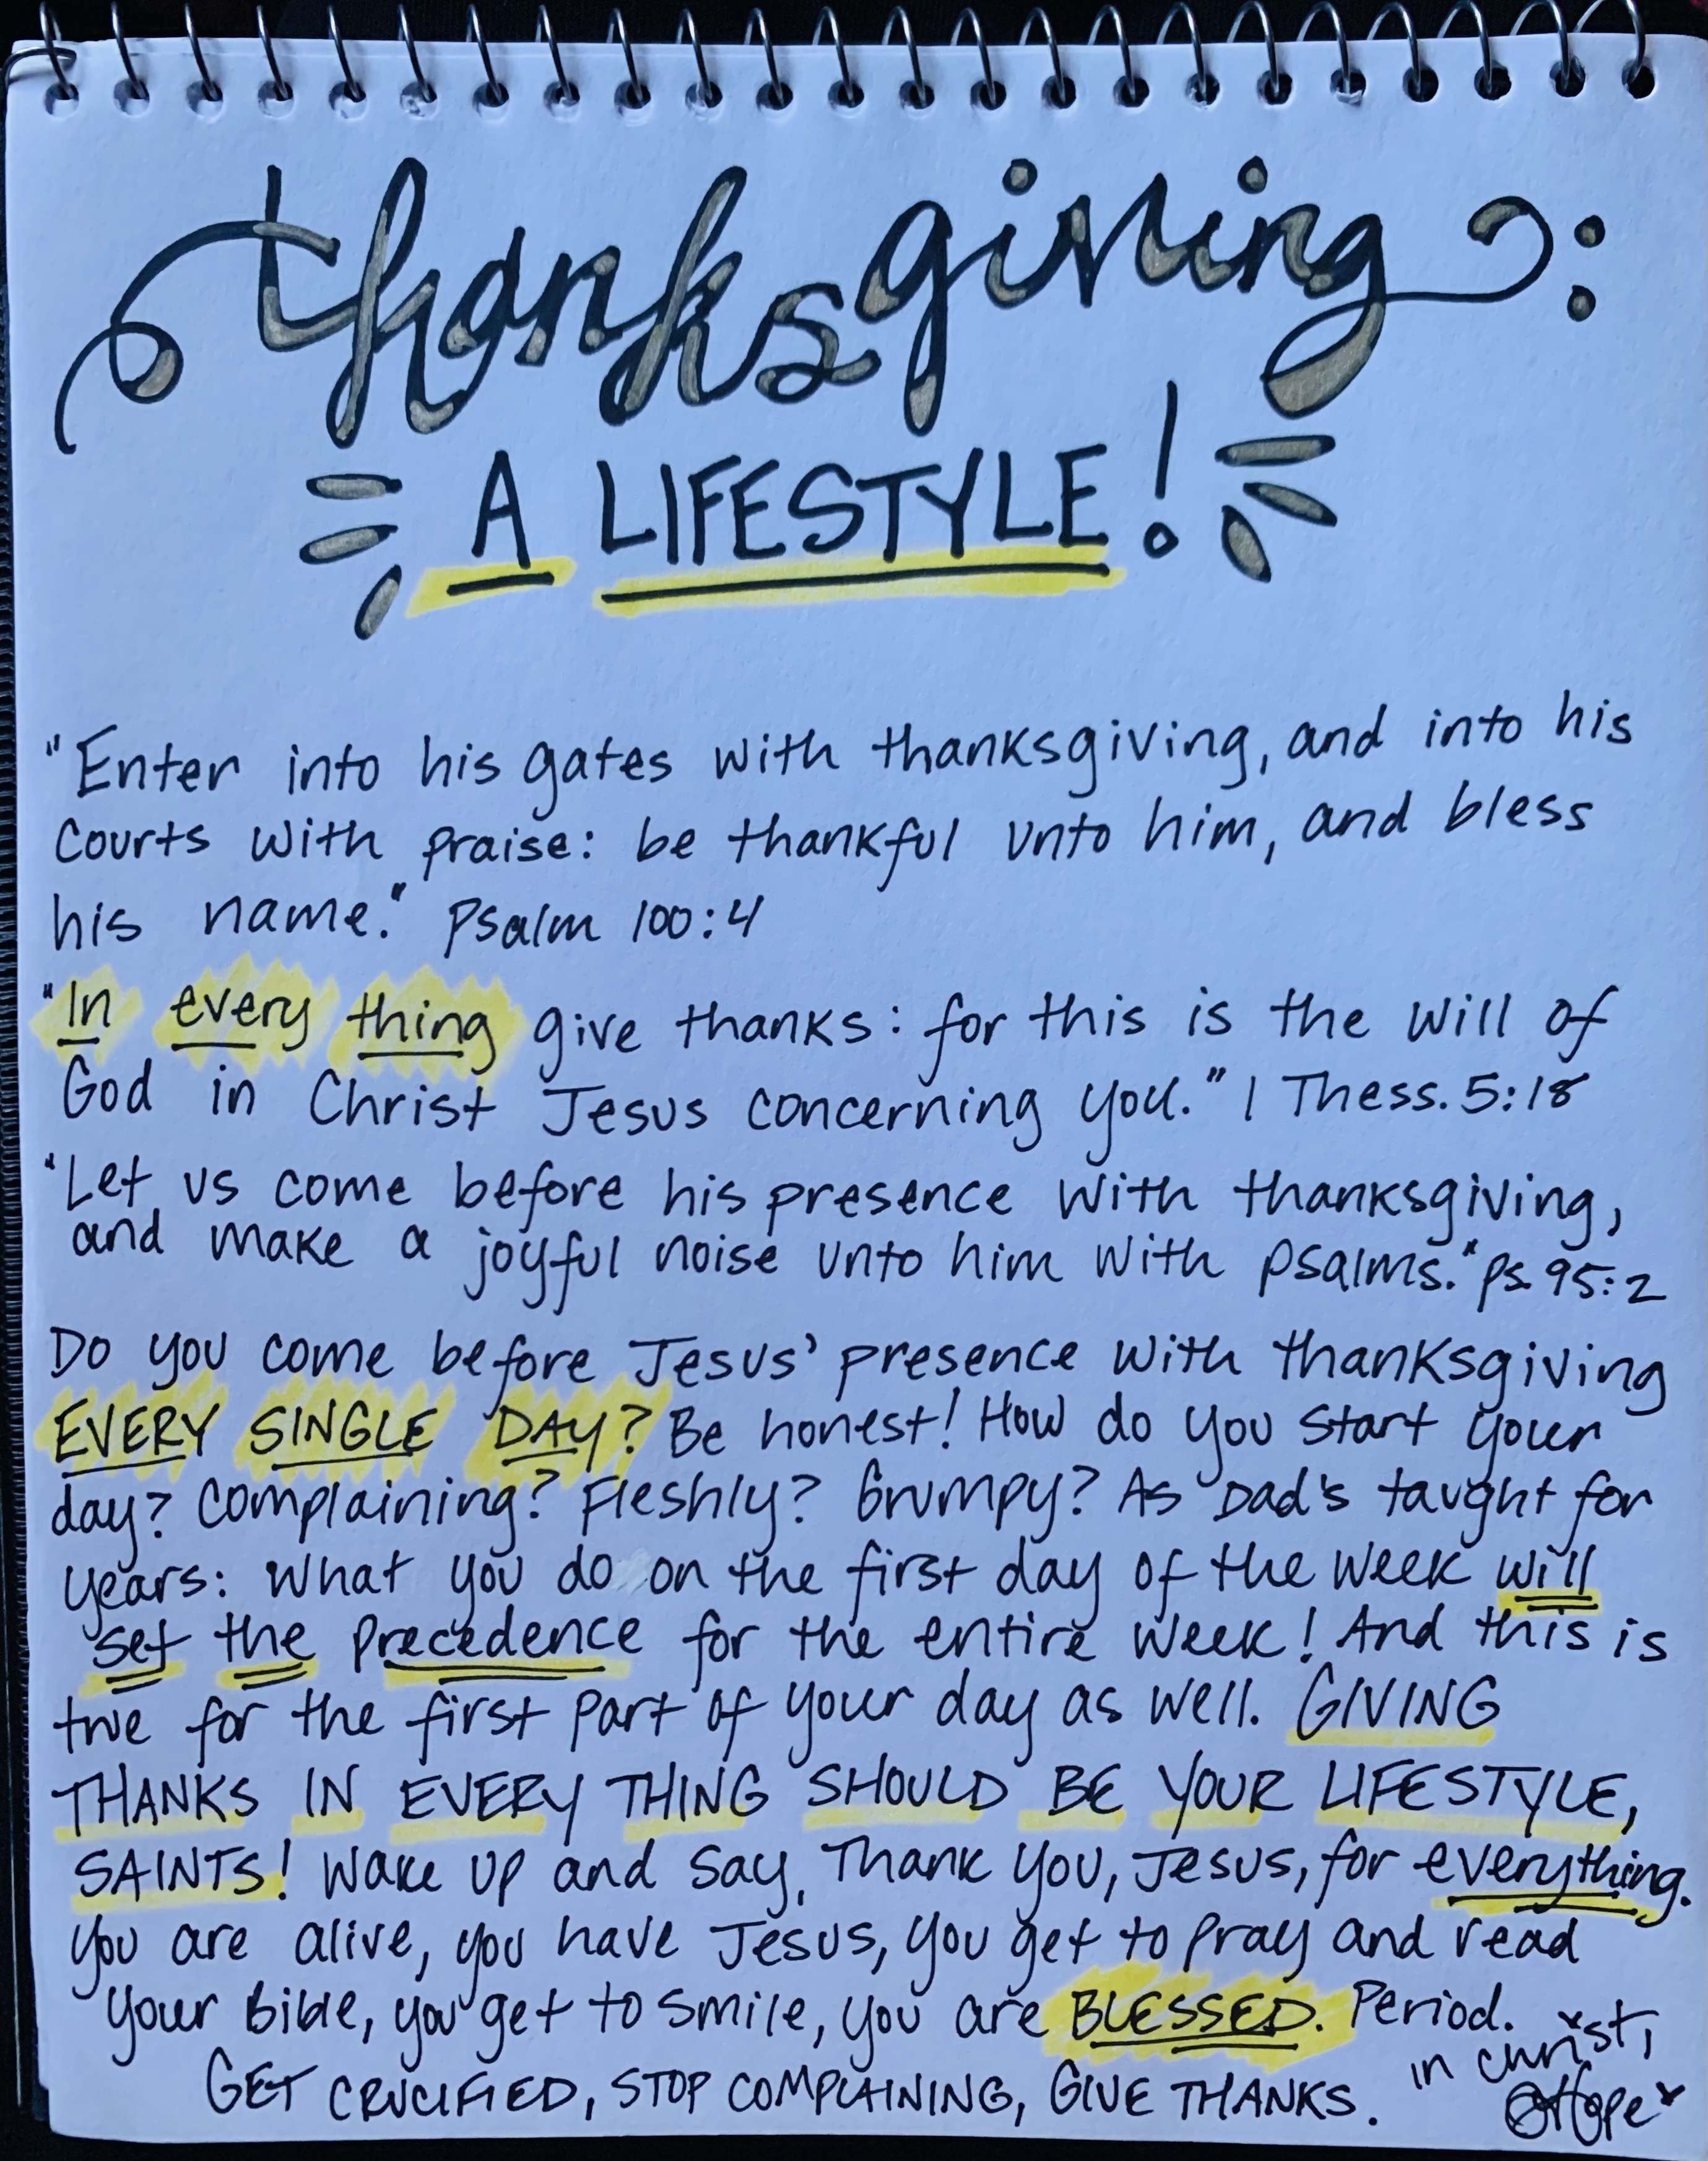 thanksgiving:
A LIFESTYLE!
"Enter into his gates with thanksgiving, and into his
courts with praise: be thankful unto him, and bless
his name." Psalm 100:4
"In every thing give thanks: for this is the will of
God in Christ Jesus concerning you." 1 Thess. 5:18
"Let us come before his presence with thanksgiving,
and make a joyful noise unto him with psalms." Ps. 95:2
Do you come before Jesus' presence with thanksgiving
EVERY SINGLE DAY? Be honest! How do you start your
day? Complaining? Fleshly? Grumpy? As Dad's taught for
years: what you do on the first day of the week will
set the precedence for the entire week! And this is
true for the first part of your day as well. GIVING
THANKS IN EVERY THING SHOULD BE YOUR LIFESTYLE,
SAINTS! Wake up and say, Thank you, Jesus, for everything.
You are alive, you have Jesus, you get to pray and read
your Bible, you get to smile, you are BLESSED. Period.
GET CRUCIFIED, STOP COMPLAINING, GIVE THANKS.
in Christ,
Hope